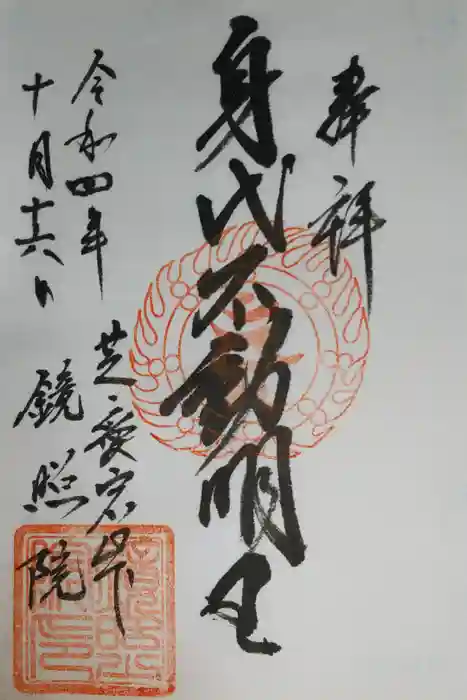 奉拝
身代不動明王
芝・愛宕下
鏡照院
令和四年
十月十六日